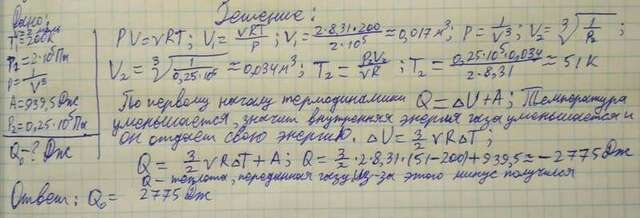 Дано:
T₁=200К
P₁=2·10⁵Па
P=1/V³
A=939,5 Дж
P₂=0,25·10⁵Па
Q₀-? Дж
Решение:
PV=νRT; V₁=νRT/P; V₁=2·8,31·200/2·10⁵≈0,017м³; P=1/V³; V₂=∛(1/P₂);
V₂=∛(1/0,25·10⁵)≈0,034м³; T₂=P₂V₂/νR; T₂=0,25·10⁵·0,034/2·8,31≈51К
По первому началу термодинамики Q=ΔU+A; Температура
уменьшается, значит внутренняя энергия газа уменьшается и
он отдает свою энергию. ΔU=3/2 νRΔT;
Q=3/2 νRΔT+A; Q=3/2·2·8,31·(51-200)+939,5≈-2775Дж
Q-теплота, переданная газу, из-за этого минус получился
Ответ: Q₀= 2775 Дж